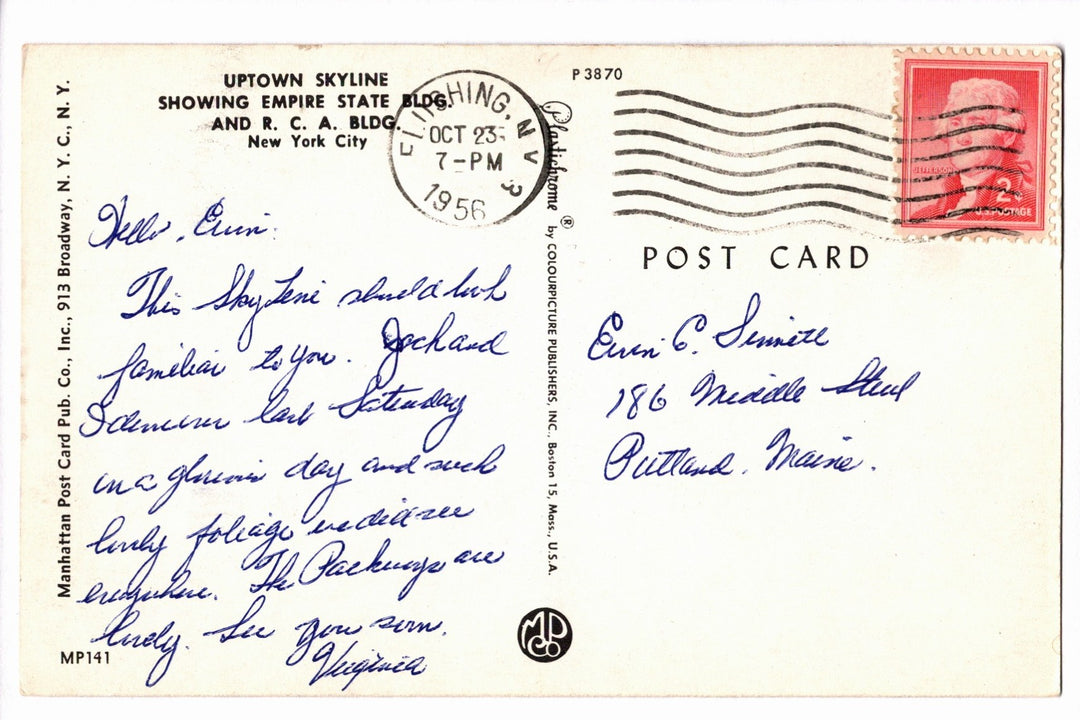 UPTOWN SKYLINE
SHOWING EMPIRE STATE BLDG.
AND R. C. A. BLDG.
New York City
Manhattan Post Card Pub. Co., Inc., 913 Broadway, N. Y. C., N. Y.
FLUSHING, N Y
OCT 23
7-PM
1956
3
P3870
JEFFERSON
2¢
U.S. POSTAGE
Plastichrome ® by COLOURPICTURE PUBLISHERS, INC., Boston 15, Mass., U.S.A.
POST CARD
Hello,
This Skyline should look
familiar to you. Jack and
I last Saturday
on a glorious day and such
lovely foliage we did see
everywhere. The are
lovely. See you soon.
Virginia
186 Middle Street
Portland. Maine.
MPCo
MP141